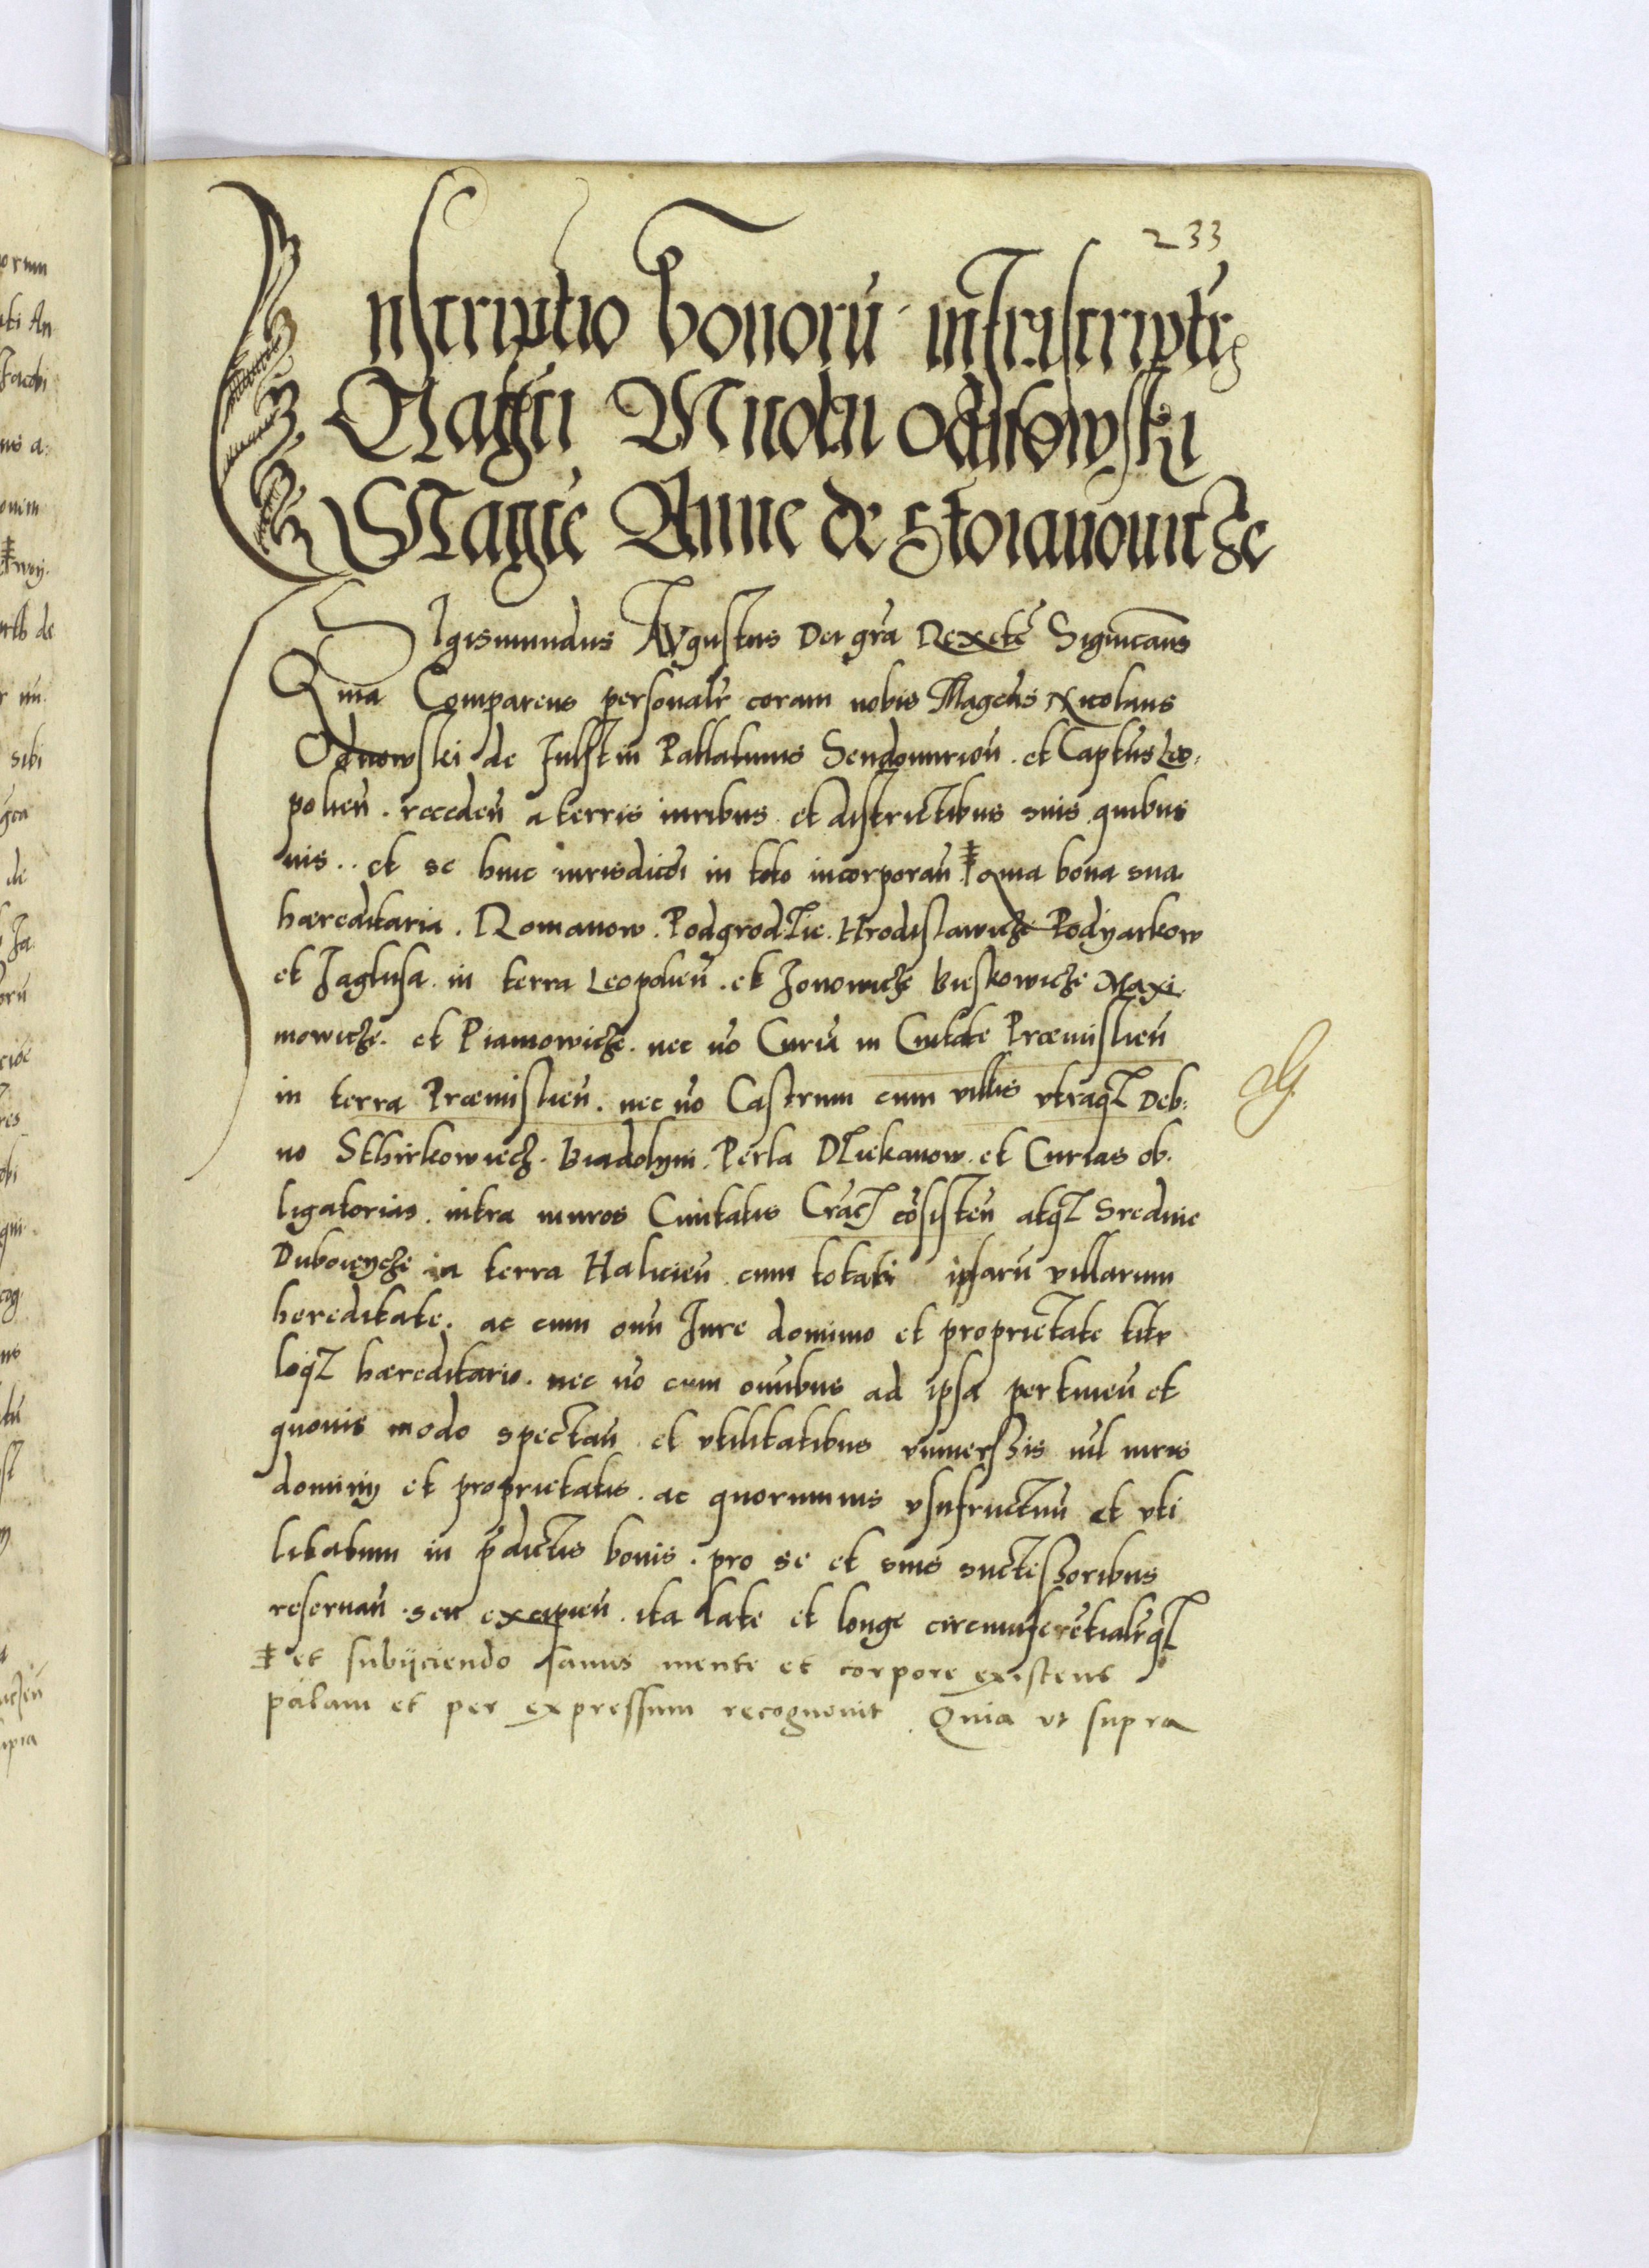 233
Inscriptio bonorũ infrascriptorꝝ
Magci Nicolai Odnowski
Magce Anne de Stoianouicze
Sigismundus AVgustus Dei gra Rex etc̃ Significans
Quia Comparens personalr̃ coram nobis Magcus Nicolaus
Odnowskj de Fulstin Pallatinus Sendomirieñ. et Captus Leo,
polieñ. recedeñ a terris iuribus et districtibus suis quibus
uis.. et se huic iurisdictioi in toto incorporañ ǂ Quia bona sua
hæreditaria. Romanow. Podgrodzie. Hrodislawicze Podyarkow
et Zaglusa in terra Leopolieñ. et Jonowicze Bieskowicze Maxi.
mowicze. et Pianowicze. nec nõ Curia in Ciuitate Præmislieñ
in terra Præmislieñ. nec nõ Castrum cum villis vtraqꝫ Deb,
no Sthirkowiecz. Biadolyni. Perla Dziekanow. et Curias ob.
ligatorias. intra muros Ciuitatis Crac cõsisteñ atqꝫ Srednie
Dubowycze in terra Halicieñ cum totali ipsarũ villarum
hereditate. ac cum omi Jure dominio et proprietate titu
loqꝫ hæreditario. nec nõ cum omibus ad ipsa pertineñ et
quouis modo spectañ et vtilitatibus vniuersis nil iuris
dominij et proprietatis. ac quorumuis vsufructuũ et vti
litatum in p̃dictis bonis. pro se et suis successoribus
reseruañ seu excipieñ. ita late et longe circumferẽtialr̃qꝫ
ǂ et subijciendo sanus mente et corpore existens
palam et per expressum recognouit. Quia vt supra